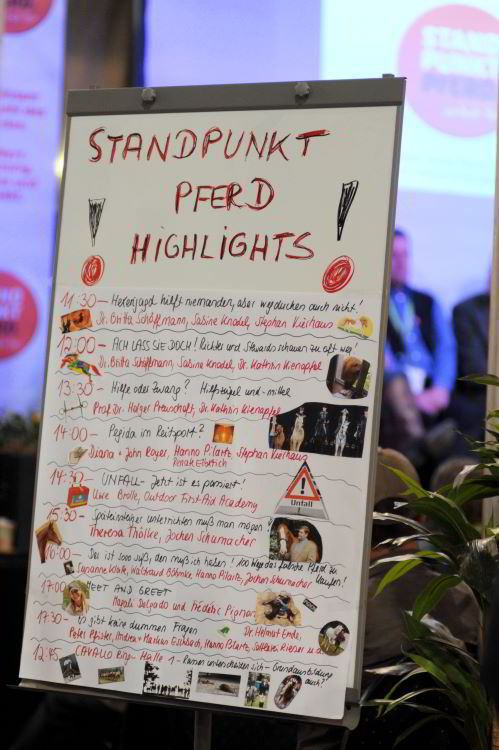 STANDPUNKT
PFERD
HIGHLIGHTS
11:30 – Hexenjagd hilft niemanden, aber wegducken auch nicht!
Dr. Britta Schöffmann, Sabine Knodel, Stephan Kierhaus
12:00 – ACH LASS SIE DOCH! Richter und Stewards schauen zu oft weg!
Dr. Britta Schöffmann, Sabine Knodel, Dr. Kathrin Kienapfel
13:30 – Hilfe oder Zwang? Hilfszügel und -mittel
Prof. Dr. Holger Preuschoft, Dr. Kathrin Kienapfel
14:00 – Pegida im Reitsport?
Diana + John Royer, Hanno Pilartz, Stephan Kierhaus
Renate Ettl
14:30 – UNFALL – Jetzt ist es passiert!
Uwe Brolle, Outdoor First-Aid Academy
Unfall
15:30 – Späteinsteiger unterrichten muß man mögen
Theresa Thölke, Jochen Schumacher
16:00 – Der ist sooo süß, den muß ich haben! 100 Wege das falsche Pferd zu kaufen!
Susanne Waltraud Böhmke, Hanno Pilartz, Jochen Schumacher
17:00 MEET AND GREET
Magali Delgado und Frédéric Pignon
17:30 – Es gibt keine dummen Fragen
Dr. Helmut Ende,
Peter Pfister, Andrea + Markus Eschbach, Hanno Pilartz, u.a.
12:45 CAVALLO Ring – Halle 1 – Rassen unterscheiden sich – Grundausbildung auch?
STAND
PUNKT
PFERD